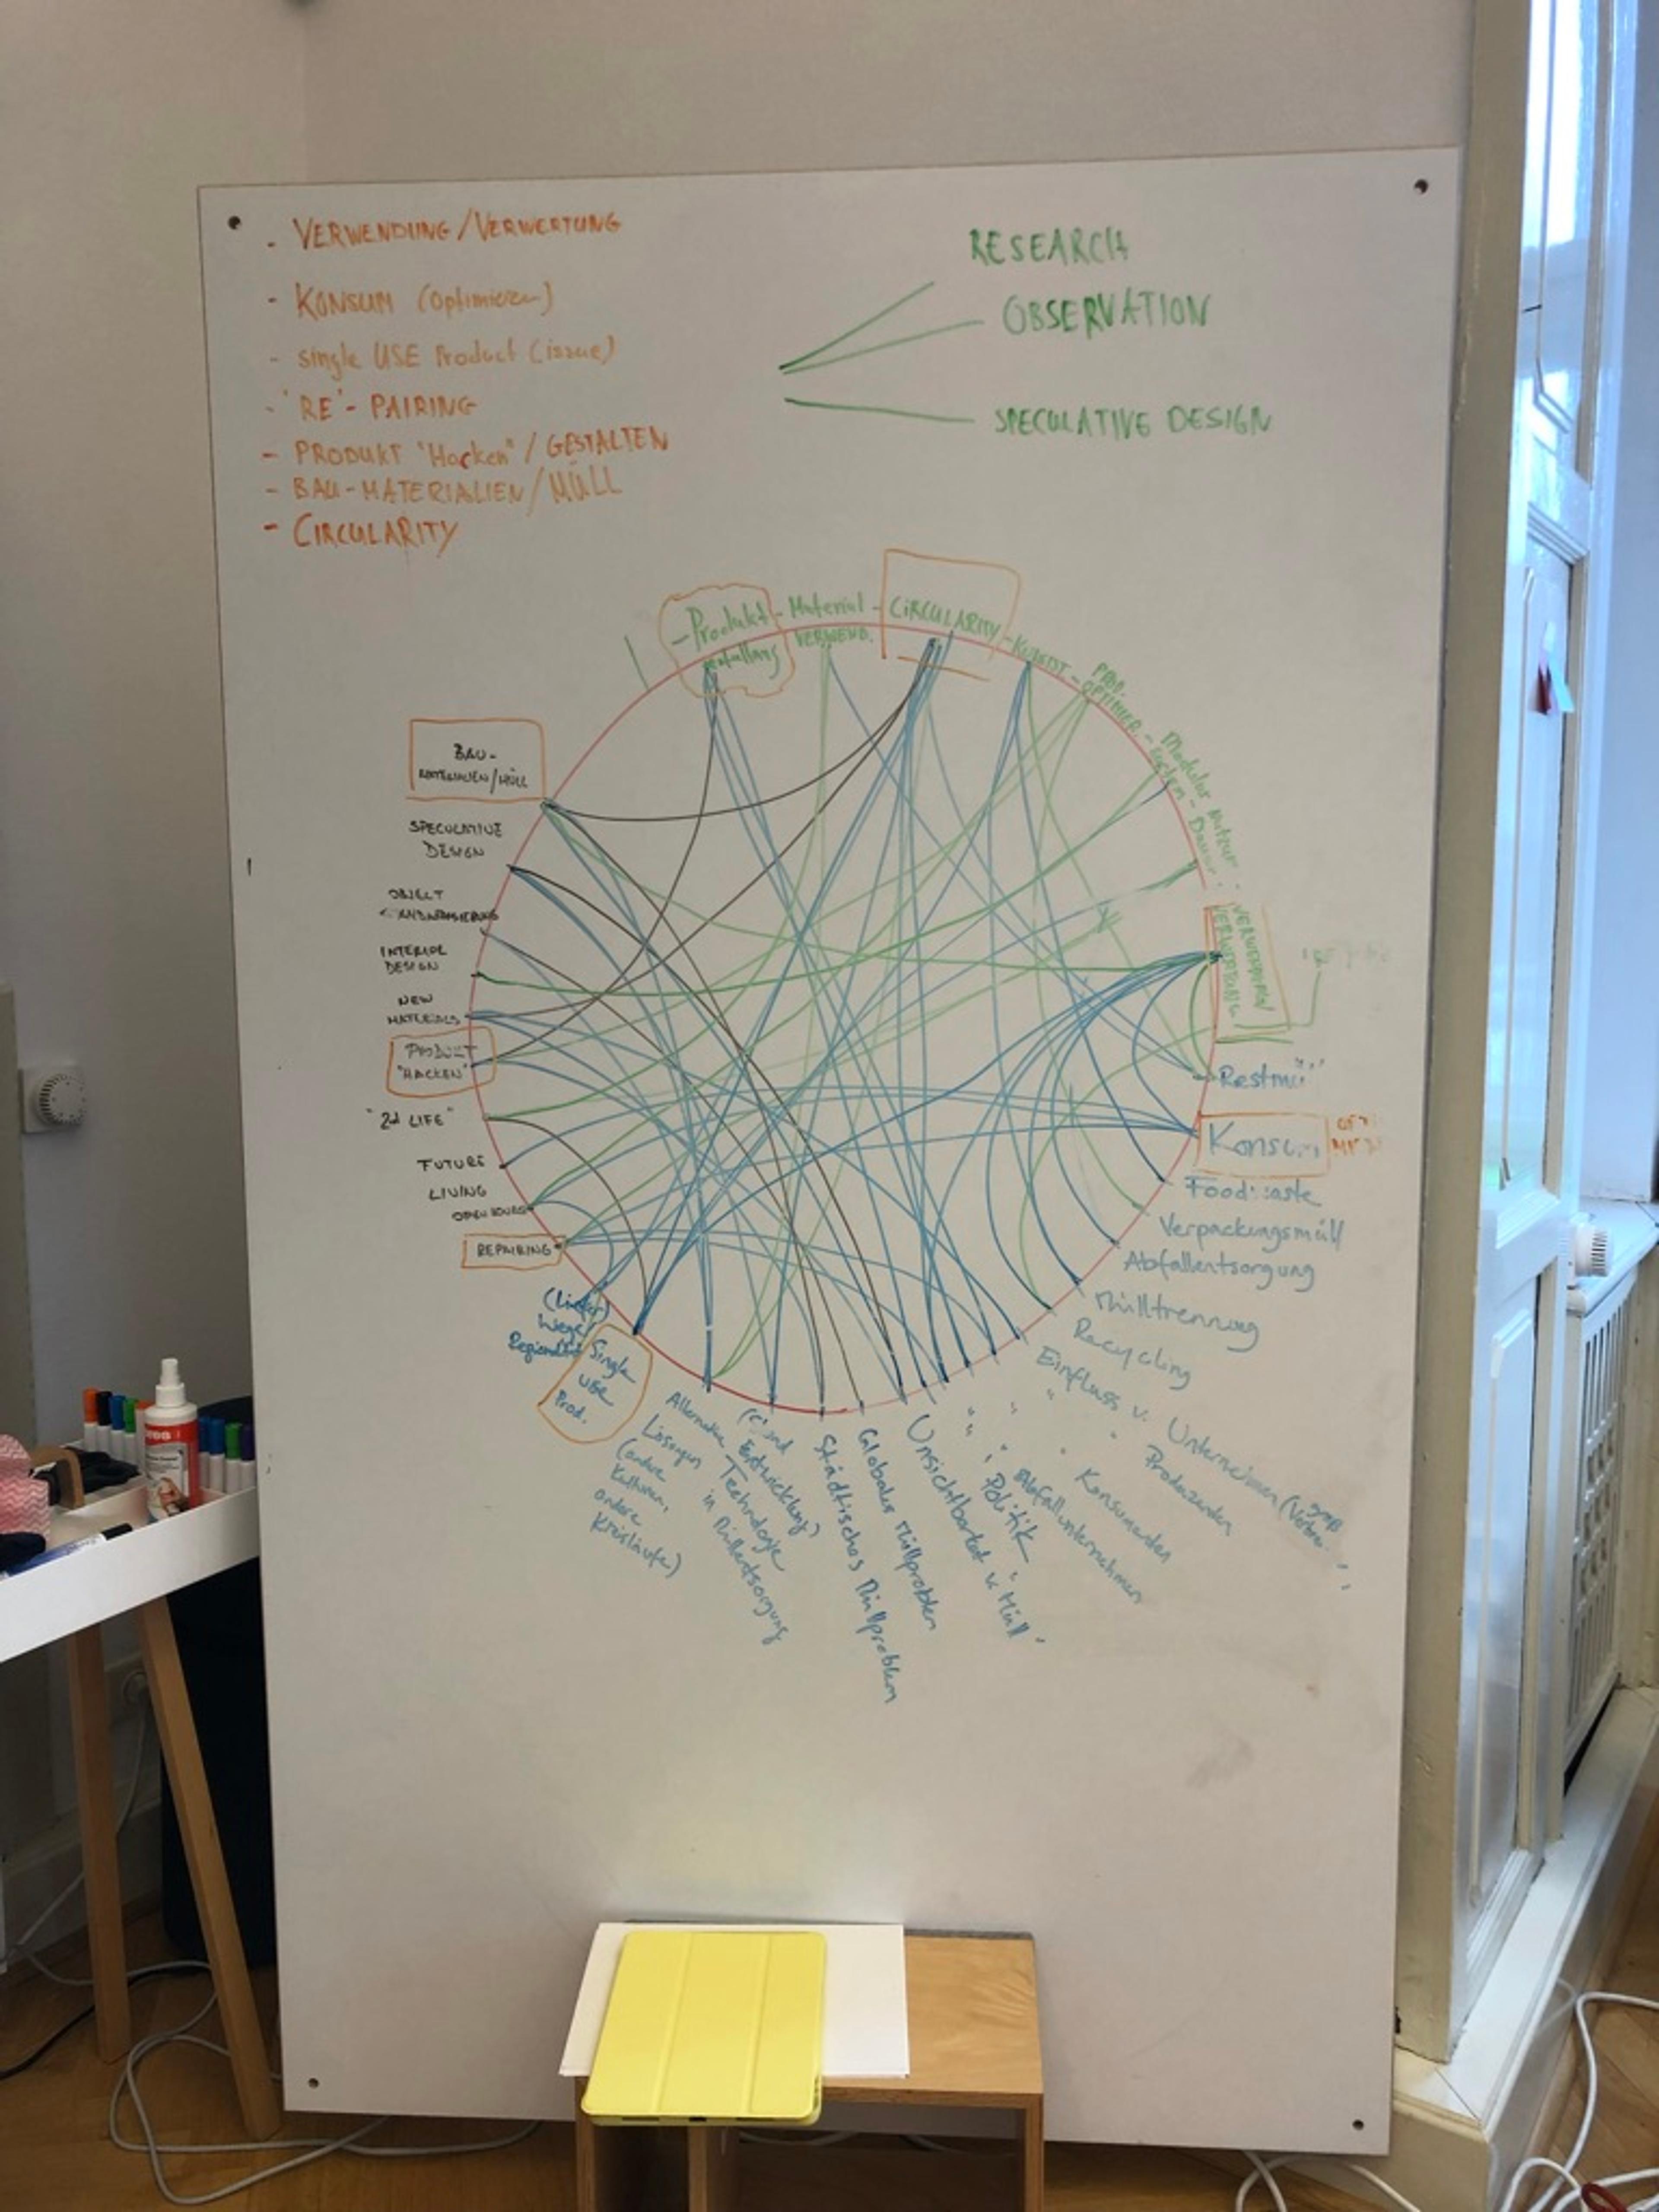 - VERWENDUNG/VERWERTUNG
- KONSUM (optimieren)
- single USE Product (issue)
- 'RE'- PAIRING
- PRODUKT "Hacken" / GESTALTEN
- BAU-MATERIALIEN/MÜLL
- CIRCULARITY
RESEARCH
OBSERVATION
SPECULATIVE DESIGN
- Produkt
gestaltung
- Material
VERWEND.
- CIRCULARITY
- KUNST
- PROD.
OPTIMIER.
- Modular
System
- Nutzer
VERWENDUNG/
VERWERTUNG
Restmü
Konsu
Food aste
Verpackungsmüll
Abfallentsorgung
Mülltrennung
Recycling
Einfluss v. Unternehmen (
" " Produzenten
" " Konsumenten
" " Abfallunternehmen
" " Politik
Unsichtbarkeit v. "Müll"
Globales Müllproblem
Städtisches Müllproblem
Entwicklung)
Technologie
in Müllentsorgung
Alternative
Lösungen
(andere
Kulturen,
andere
Kreisläufe)
Single
use
Prod.
(Liefer)
Wege/
REPAIRING
OPEN SOURCE
FUTURE
LIVING
"2nd LIFE"
PRODUKT
"HACKEN"
NEW
MATERIALS
INTERIOR
DESIGN
OBJECT
SPECULATIVE
DESIGN
BAU-
MATERIALIEN/MÜLL